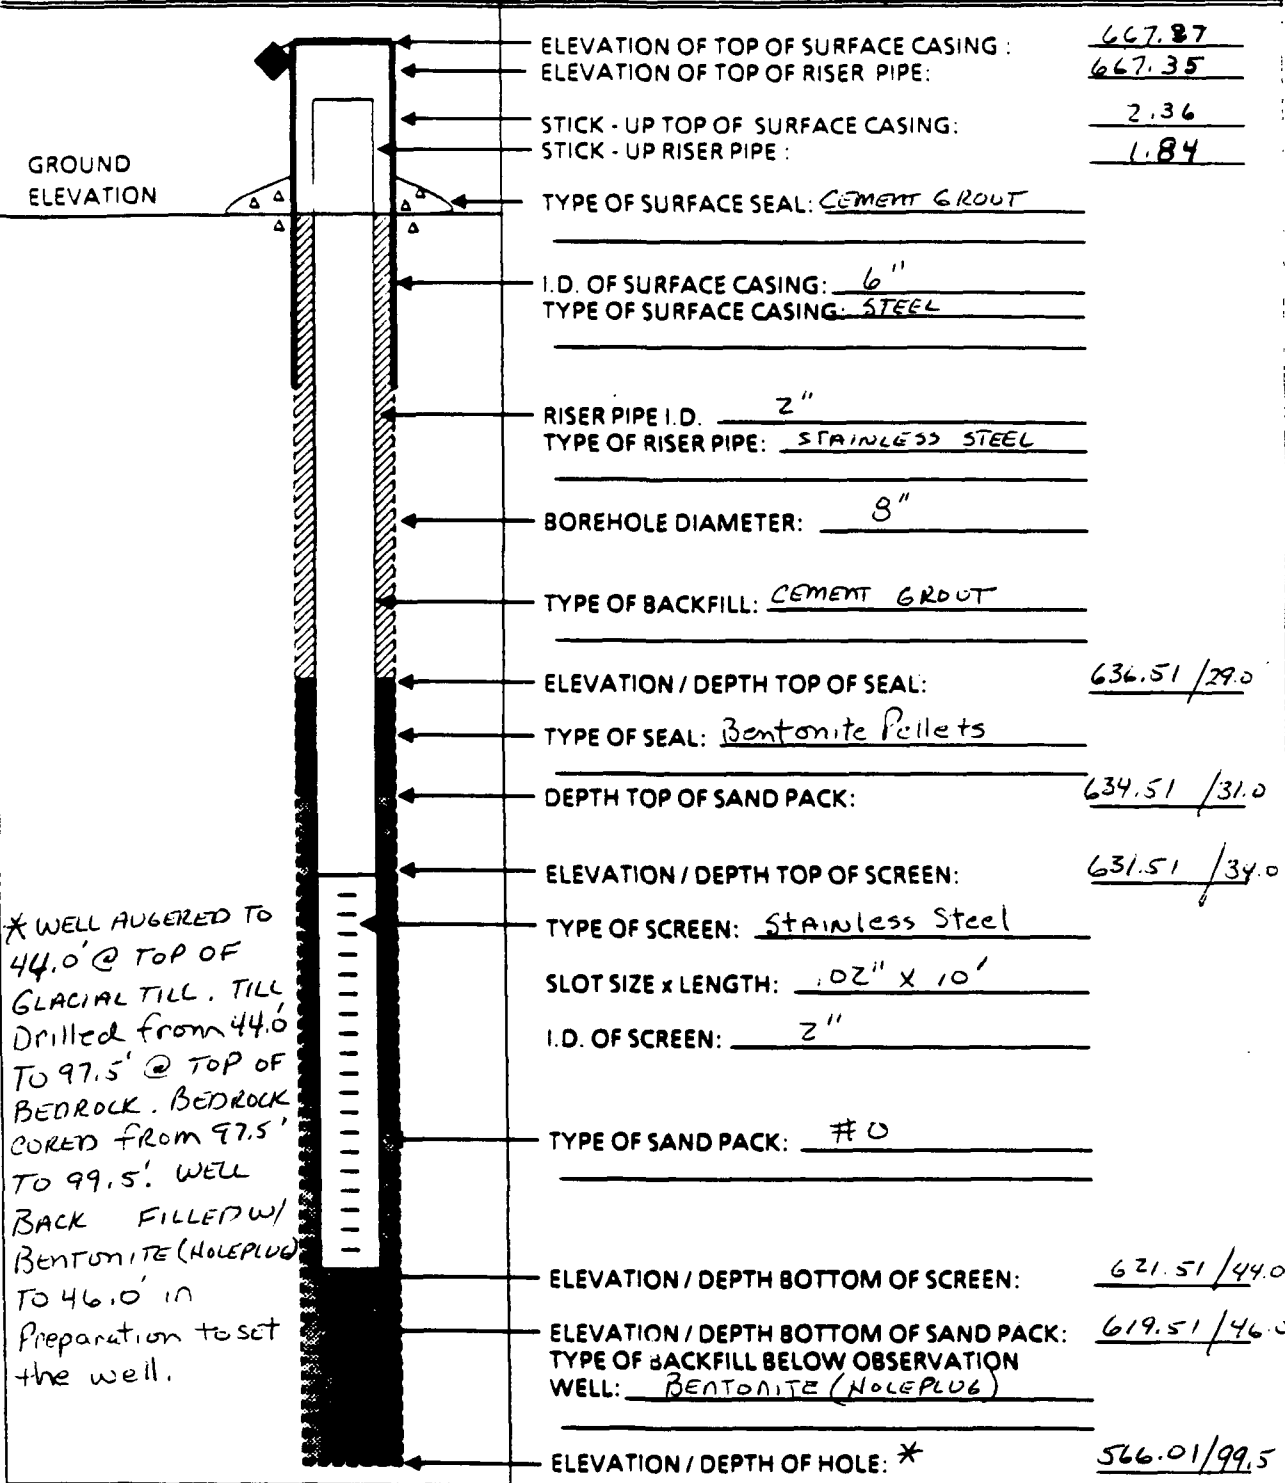 ELEVATION OF TOP OF SURFACE CASING : 667.87
ELEVATION OF TOP OF RISER PIPE: 667.35
STICK - UP TOP OF SURFACE CASING: 2.36
STICK - UP RISER PIPE : 1.84
GROUND
ELEVATION
TYPE OF SURFACE SEAL: CEMENT GROUT
I.D. OF SURFACE CASING: 6"
TYPE OF SURFACE CASING: STEEL
RISER PIPE I.D. 2"
TYPE OF RISER PIPE: STAINLESS STEEL
BOREHOLE DIAMETER: 8"
TYPE OF BACKFILL: CEMENT GROUT
ELEVATION / DEPTH TOP OF SEAL: 636.51 /29.0
TYPE OF SEAL: Bentonite Pellets
DEPTH TOP OF SAND PACK: 634.51 /31.0
ELEVATION / DEPTH TOP OF SCREEN: 631.51 /34.0
TYPE OF SCREEN: Stainless Steel
SLOT SIZE x LENGTH: .02" x 10'
I.D. OF SCREEN: 2"
TYPE OF SAND PACK: #0
ELEVATION / DEPTH BOTTOM OF SCREEN: 621.51/44.0
ELEVATION / DEPTH BOTTOM OF SAND PACK: 619.51/46.0
TYPE OF BACKFILL BELOW OBSERVATION
WELL: BENTONITE (HOLEPLUG)
ELEVATION / DEPTH OF HOLE: * 566.01/99.5
* WELL AUGERED TO
44.0' @ TOP OF
GLACIAL TILL. TILL
Drilled from 44.0'
TO 97.5' @ TOP OF
BEDROCK. BEDROCK
CORED FROM 97.5'
TO 99.5'. WELL
BACK FILLED W/
BENTONITE (HOLEPLUG)
TO 46.0' in
Preparation to set
the well.